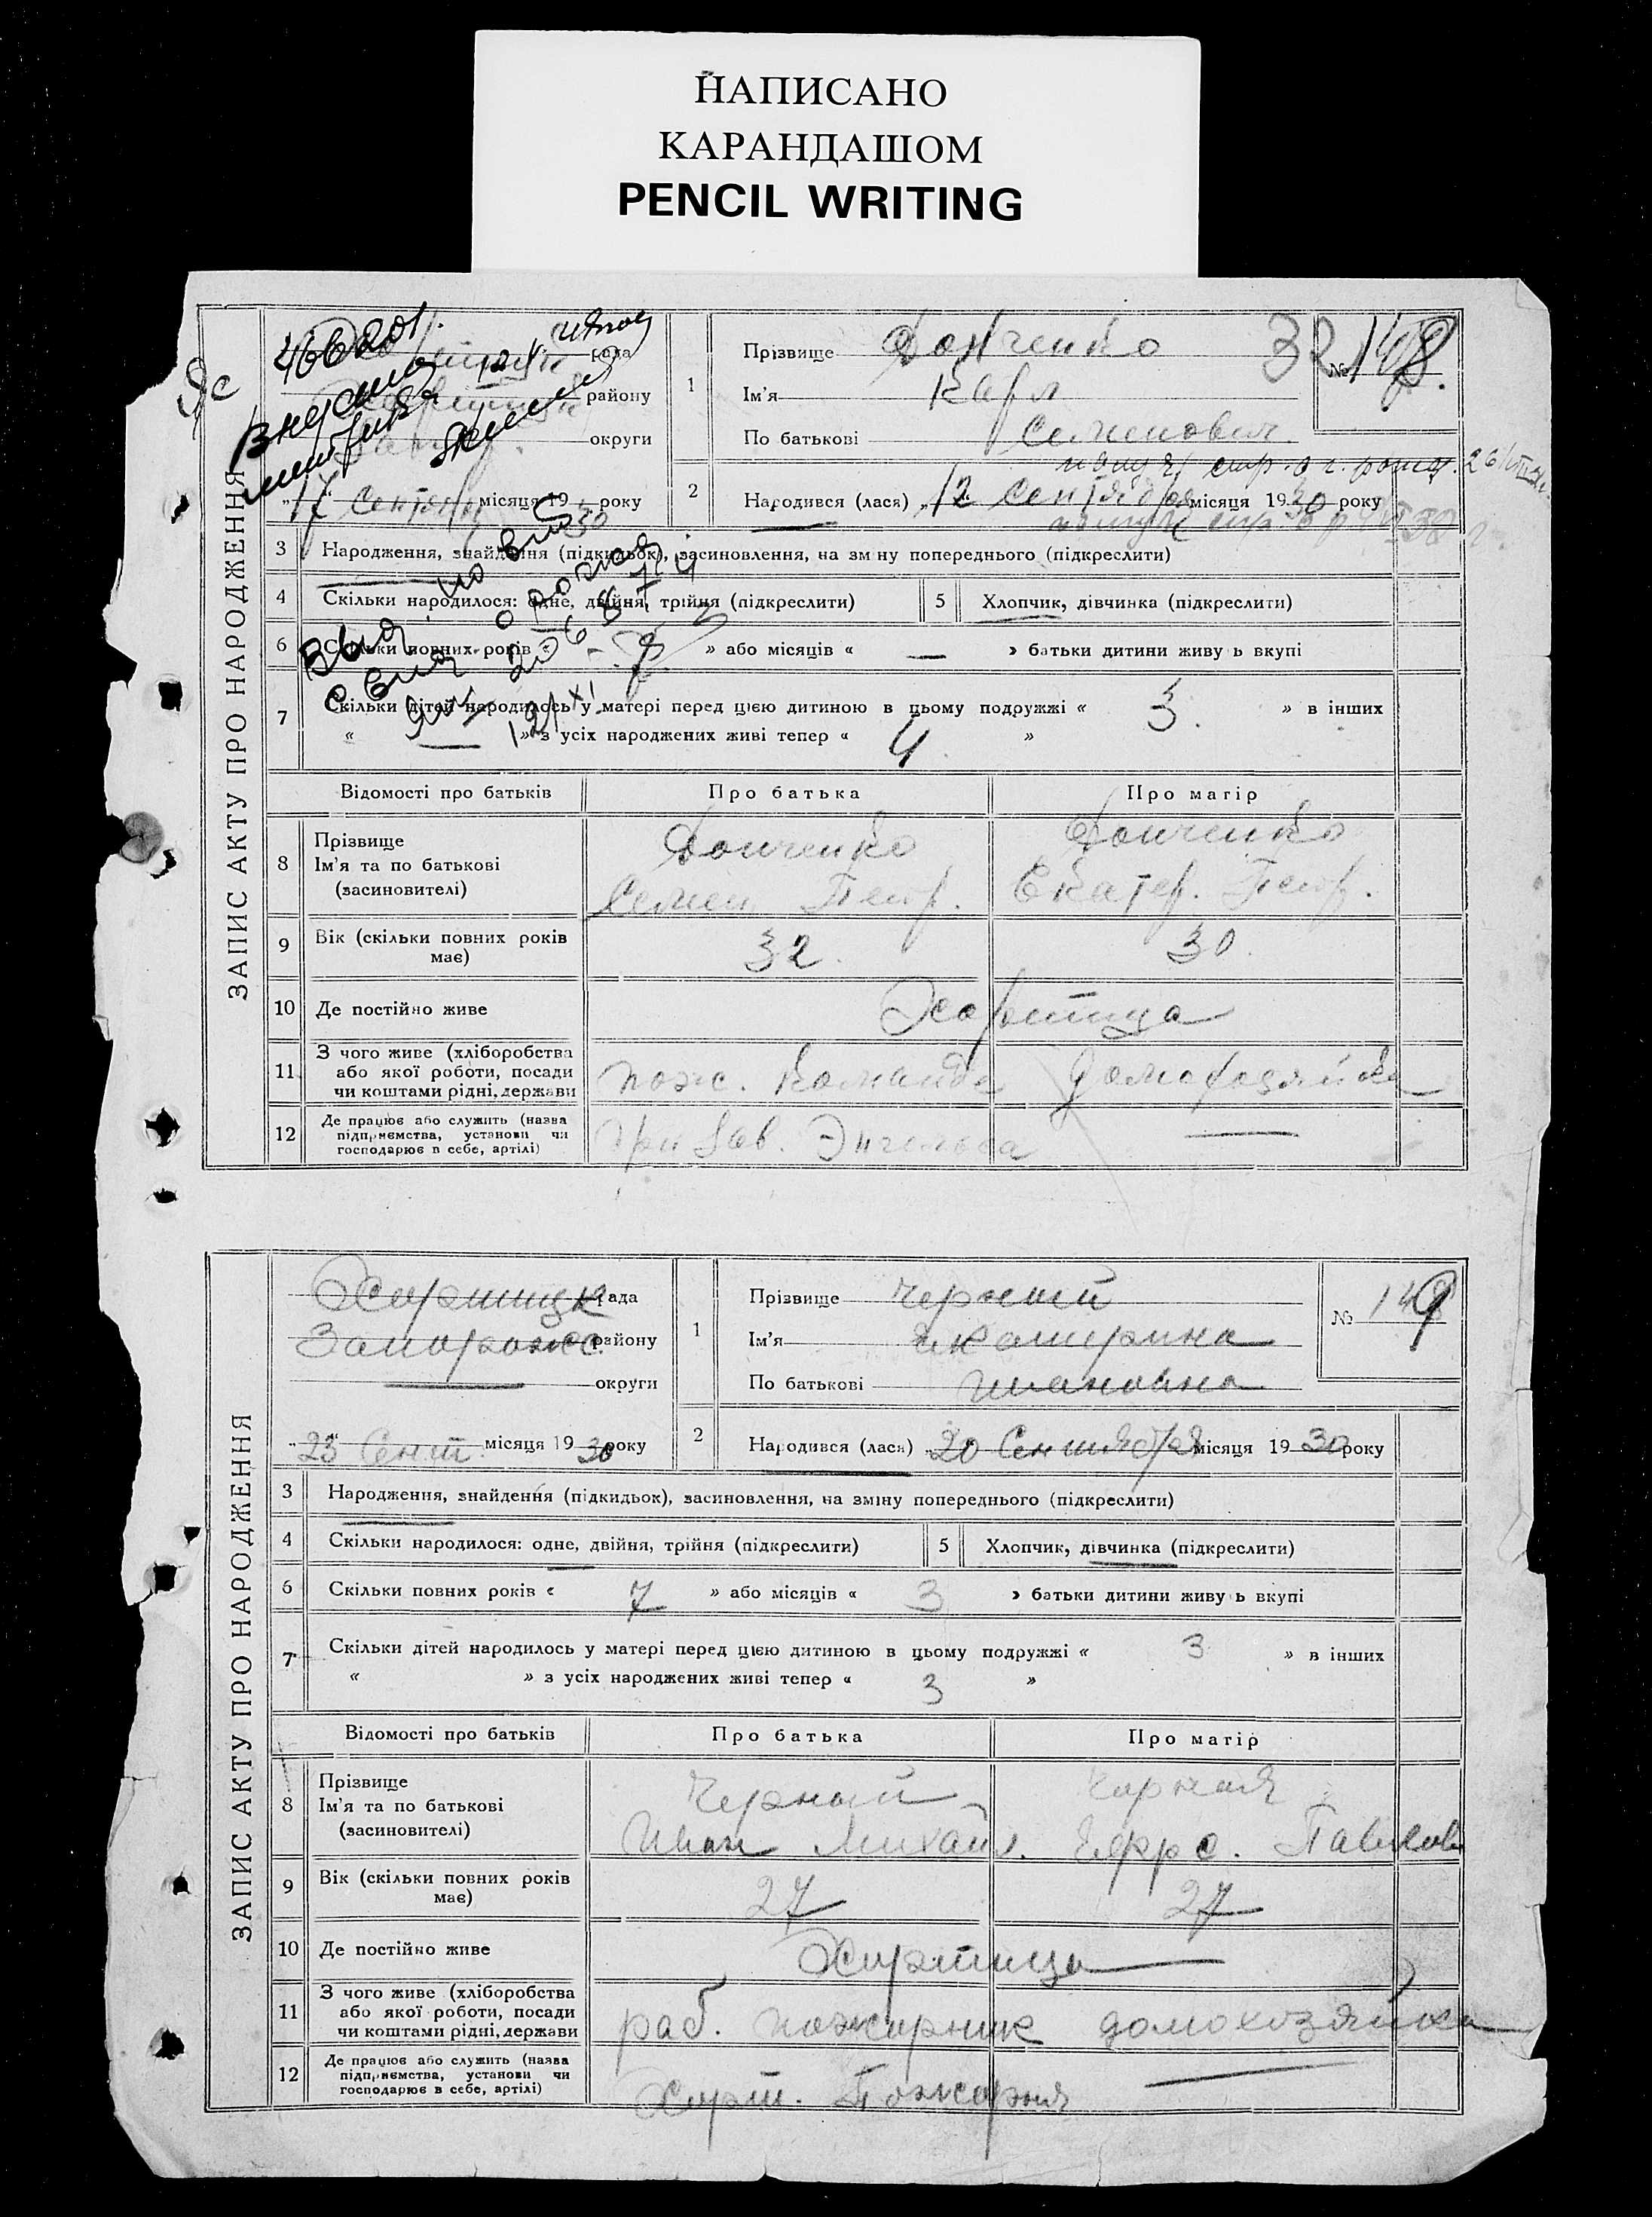 НАПИСАНО
КАРАНДАШОМ
PENCIL WRITING
ЗАПИС АКТУ ПРО НАРОДЖЕННЯ
рада
району
округи
„17“ Сентября місяця 1930 року
1
Прізвище Донченко
Ім'я Карл
По батькові Семенович
32
№ 148.
2
Народився (лася) „12 Сентября місяця 1930 року
3 Народження, знайдення (підкидьок), засиновлення, на зміну попереднього (підкреслити)
4 Скільки народилося: одне, двійня, трійня (підкреслити)
5 Хлопчик, дівчинка (підкреслити)
6 Скільки повних років « 8 » або місяців « — » батьки дитини живуть вкупі
7 Скільки дітей народилось у матері перед цією дитиною в цьому подружжі « 3. » в інших
« — » з усіх народжених живі тепер « 4 »
Відомості про батьків
Про батька
Про матір
8 Прізвище
Ім'я та по батькові
(засиновителі)
Донченко
Семен Петр.
Донченко
Екатер. Петр.
9 Вік (скільки повних років має)
32.
30.
10 Де постійно живе
Хортица
11 З чого живе (хліборобства
або якої роботи, посади
чи коштами рідні, держави
пож. команда
домохозяйка
12 Де працює або служить (назва
підприємства, установи чи
господарює в себе, артілі)
при зав. Энгельса
—
ЗАПИС АКТУ ПРО НАРОДЖЕННЯ
Хортицк рада
Запорожс. району
— округи
„23“ Сент. місяця 1930 року
1
Прізвище Черный
Ім'я Екатерина
По батькові Ивановна
№ 149
2
Народився (лася) „20 Сентября місяця 1930 року
3 Народження, знайдення (підкидьок), засиновлення, на зміну попереднього (підкреслити)
4 Скільки народилося: одне, двійня, трійня (підкреслити)
5 Хлопчик, дівчинка (підкреслити)
6 Скільки повних років « 7 » або місяців « 3 » батьки дитини живуть вкупі
7 Скільки дітей народилось у матері перед цією дитиною в цьому подружжі « 3 » в інших
« » з усіх народжених живі тепер « 3 »
Відомості про батьків
Про батька
Про матір
8 Прізвище
Ім'я та по батькові
(засиновителі)
Черный
Иван Михайл.
Черная
Павлов
9 Вік (скільки повних років має)
27
27
10 Де постійно живе
Хортица
11 З чого живе (хліборобства
або якої роботи, посади
чи коштами рідні, держави
раб. пожарник
домохозяйка
12 Де працює або служить (назва
підприємства, установи чи
господарює в себе, артілі)
Хорт. Пожарня
—